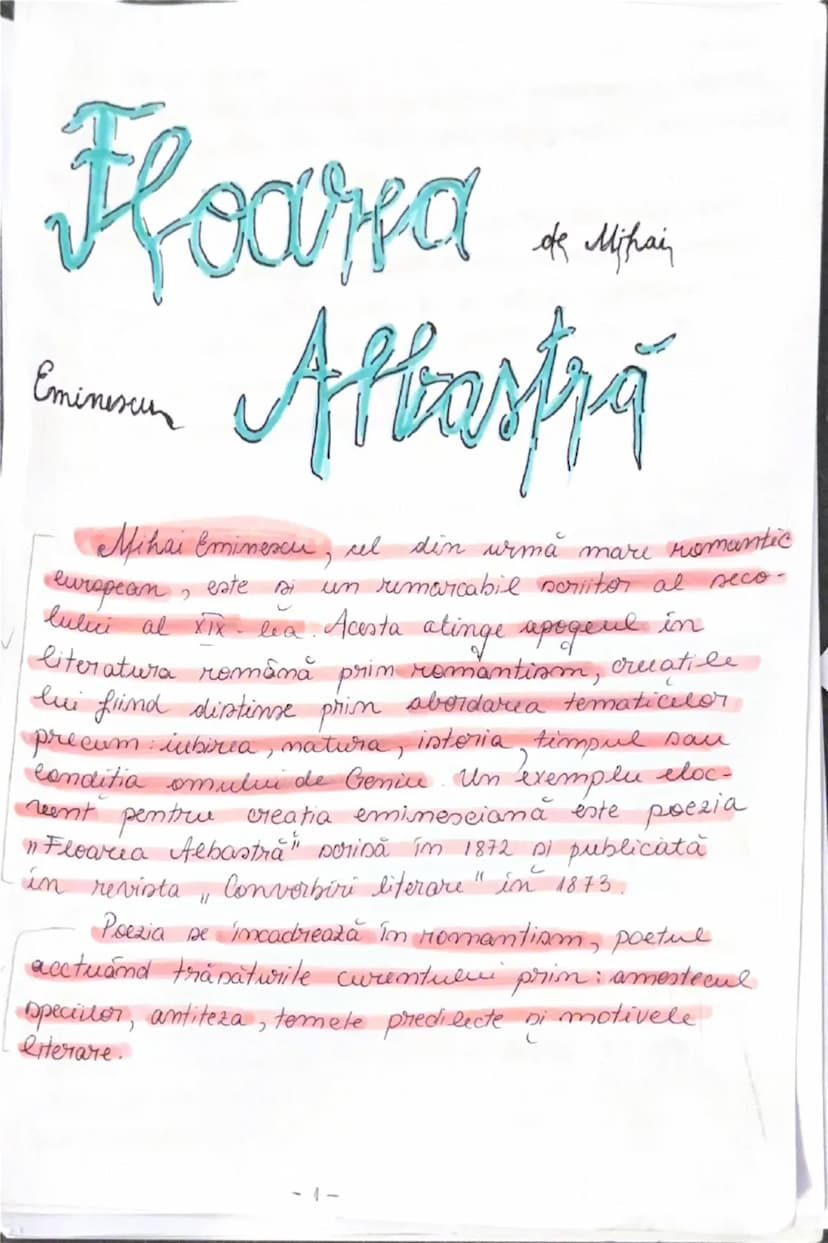 Floarea
de Mihai
Eminescu
Albastră
Mihai Eminescu, cel din urmă mare romantic
european, este și un remarcabil scriitor al seco-
lului al XIX-lea. Acesta atinge apogeul în
literatura română prim romantism, creațiile
lui fiind distinse prin abordarea tematicilor
precum: iubirea, natura, istoria, timpul sau
condiția omului de Geniu. Un exemplu eloc-
vent pentru creația eminesciană este poezia
„Floarea Albastră" scrisă în 1872 și publicată
în revista „Convorbiri literare" în 1873.
Poezia se încadrează în romantism, poetul
acctuând trăsăturile curentului prin: amestecul
speciilor, antiteza, temele predilecte și motivele
literare.
- 1 -